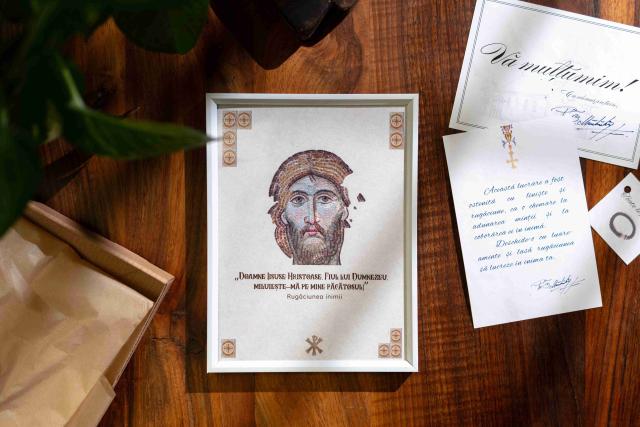 „Doamne Iisuse Hristoase, Fiul lui Dumnezeu,
miluiește-mă pe mine păcătosul!”
Rugăciunea inimii
Vă mulțumim!
Această lucrare a fost
ostenită cu liniște și
rugăciune, ca o chemare la
adunarea minții și la
coborârea ei în inimă.
Deschide-o cu luare
aminte și lasă rugăciunea
să lucreze în inima ta.